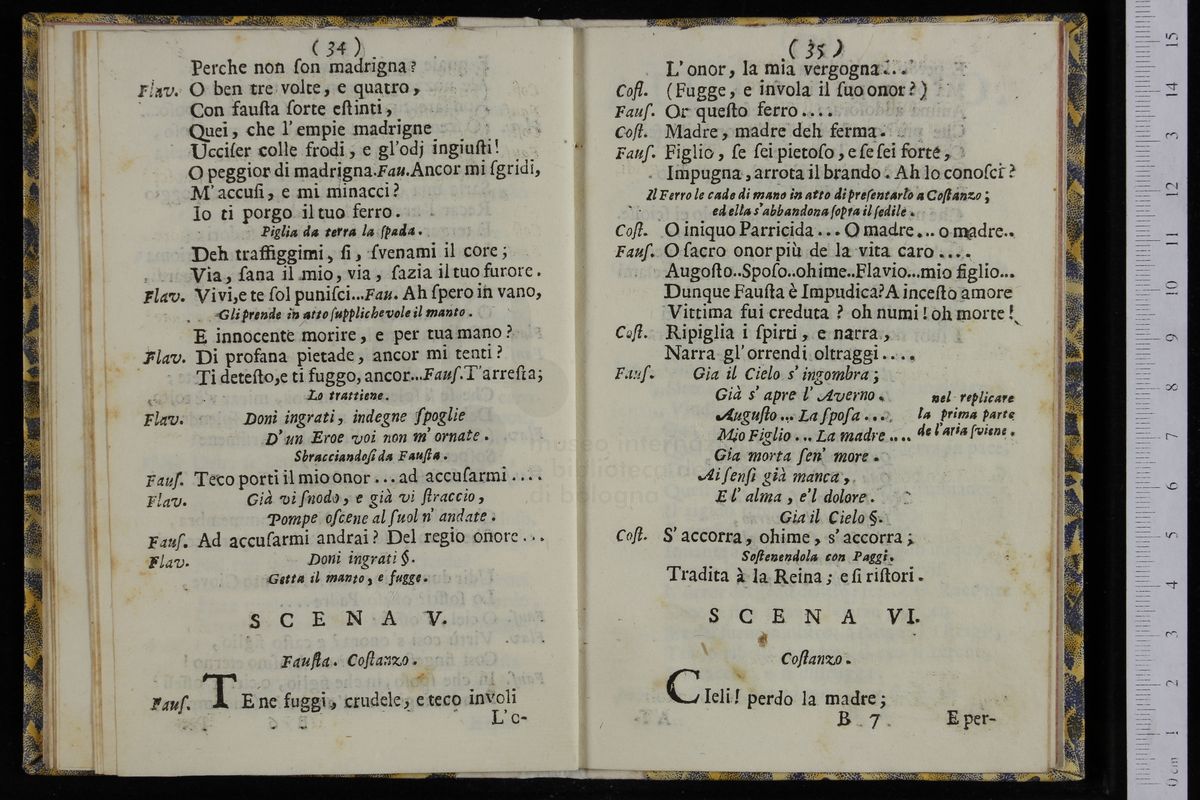 (34)
Perche non ſon madrigna?
Flav. O ben tre volte, e quatro,
Con fauſta ſorte eſtinti,
Quei, che l'empie madrigne
Ucciſer colle frodi, e gl'odj ingiuſti!
O peggior di madrigna. Fau. Ancor mi ſgridi,
M'accuſi, e mi minacci?
Io ti porgo il tuo ferro.
Piglia da terra la ſpada.
Deh traffiggimi, ſi, ſvenami il core;
Via, ſana il mio, via, ſazia il tuo furore.
Flav. Vivi, e te ſol puniſci... Fau. Ah ſpero in vano,
Gli prende in atto ſupplichevole il manto.
E innocente morire, e per tua mano?
Flav. Di profana pietade, ancor mi tenti?
Ti deteſto, e ti fuggo, ancor... Fauſ. T'arreſta;
Lo trattiene.
Flav. Doni ingrati, indegne ſpoglie
D'un Eroe voi non m'ornate.
Sbracciandoſi da Fauſta.
Fauſ. Teco porti il mio onor... ad accuſarmi....
Flav. Già vi ſnodo, e già vi ſtraccio,
Pompe oſcene al ſuol n'andate.
Fauſ. Ad accuſarmi andrai? Del regio onore...
Flav. Doni ingrati §.
Getta il manto, e fugge.
SCENA V.
Fauſta. Coſtanzo.
Fauſ. TE ne fuggi, crudele, e teco involi
L'o-
(35)
L'onor, la mia vergogna...
Coſt. (Fugge, e invola il ſuo onor?)
Fauſ. Or queſto ferro....
Coſt. Madre, madre deh ferma.
Fauſ. Figlio, ſe ſei pietoſo, e ſe ſei forte,
Impugna, arrota il brando. Ah lo conoſci?
Il Ferro le cade di mano in atto di preſentarlo a Coſtanzo;
ed ella s'abbandona ſopra il ſedile.
Coſt. O iniquo Parricida... O madre... o madre..
Fauſ. O ſacro onor più de la vita caro....
Augoſto.. Spoſo.. ohime.. Flavio... mio figlio...
Dunque Fauſta è Impudica? A inceſto amore
Vittima fui creduta? oh numi! oh morte!
Coſt. Ripiglia i ſpirti, e narra,
Narra gl'orrendi oltraggi....
Fauſ. Gia il Cielo s'ingombra;
Già s'apre l'Averno.
Auguſto... La ſpoſa...
Mio Figlio... La madre....
nel replicare
la prima parte
de l'aria ſviene.
Gia morta ſen' more.
Ai ſenſi già manca,
E l'alma, e'l dolore.
Gia il Cielo §.
Coſt. S'accorra, ohime, s'accorra;
Soſtenendola con Paggi.
Tradita à la Reina; e ſi riſtori.
SCENA VI.
Coſtanzo.
CIeli! perdo la madre;
B 7
E per-